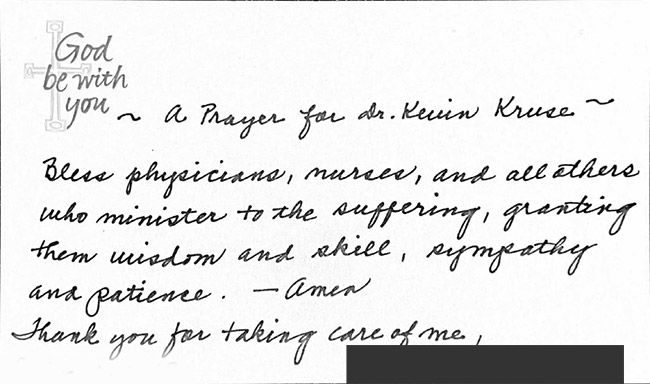 God
be with
you
~ A Prayer for Dr. Kevin Kruse ~
Bless physicians, nurses, and all others
who minister to the suffering, granting
them wisdom and skill, sympathy
and patience. — Amen
Thank you for taking care of me,